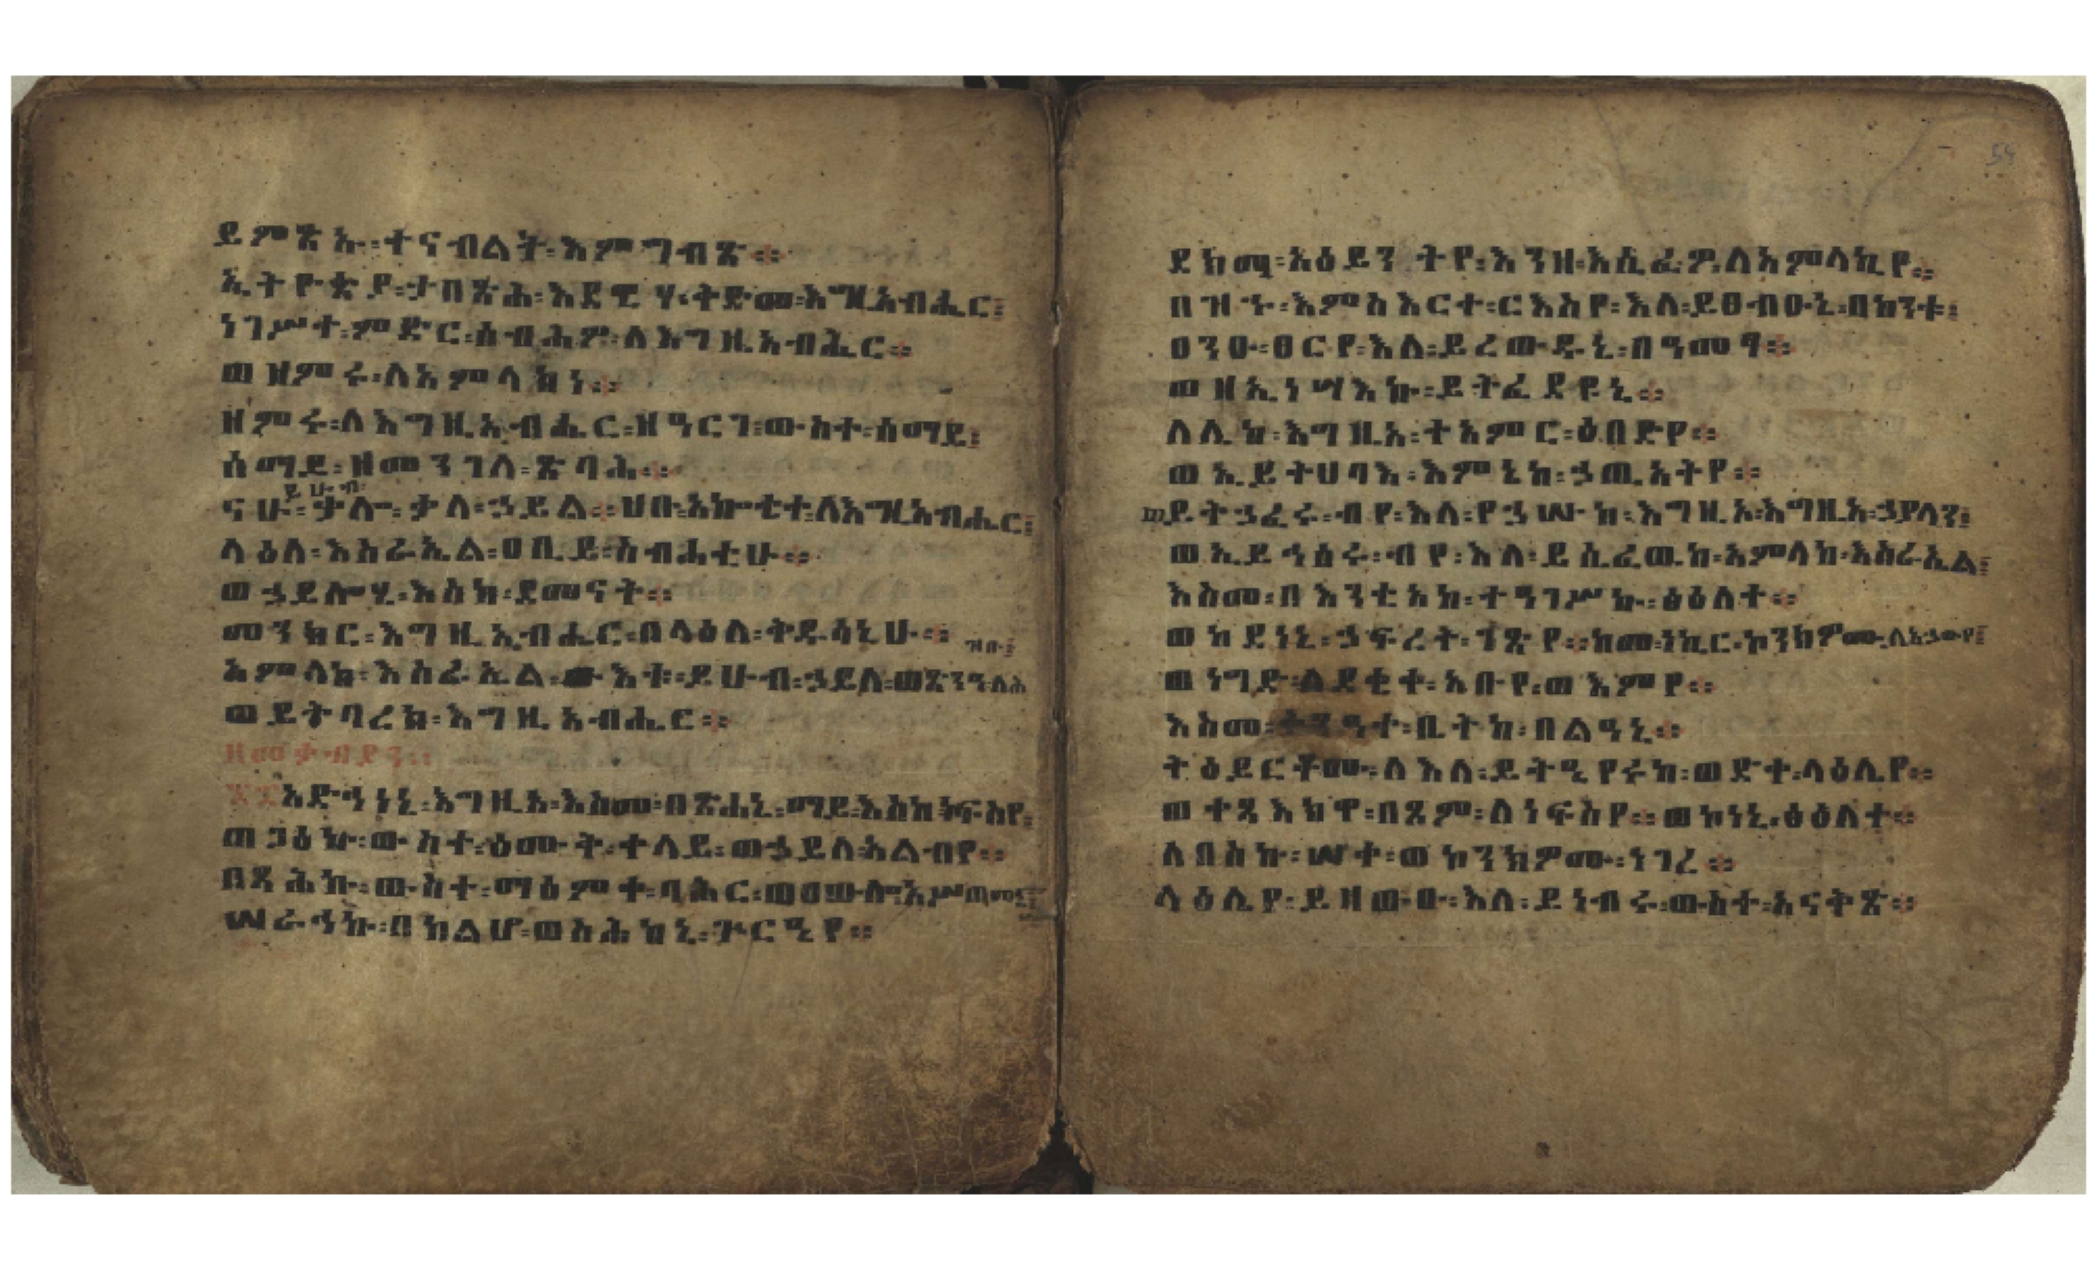 ይምጽኡ፡ተናብልት፡እምግብጽ።
ኢትዮጵያ፡ታበጽሕ፡እደዊሃ፡ቅድመ፡እግዚአብሔር፤
ነገሥተ፡ምድር፡ሰብሕዎ፡ለእግዚአብሔር።
ወዝምሩ፡ለአምላክነ።
ዘምሩ፡ለእግዚአብሔር፡ዘዓርገ፡ውስተ፡ሰማይ፤
ሰማይ፡ዘመንገለ፡ጽባሕ።
ይሁብ፡
ናሁ፡ቃሎ፡ቃለ፡ኃይል።ሀቡ፡አኰቴተ፡ለእግዚአብሔር፤
ላዕለ፡እስራኤል፡ዐቢይ፡ስብሐቲሁ።
ወኃይሎሂ፡እስከ፡ደመናት።
መንክር፡እግዚአብሔር፡በላዕለ፡ቅዱሳኒሁ።
አምላክ፡እስራኤል፡ውእቱ፡ይሁብ፡ኃይለ፡ወጽንዓ፡ለሕ
ዝቡ፤
ወይትባረክ፡እግዚአብሔር።
፷፰አድኅነኒ፡እግዚኦ፡እስመ፡በጽሐኒ፡ማይ፡እስከ፡ነፍስየ፤
ጠጋዕኩ፡ውስተ፡ዕሙት፡ተላይ፡ወኃይለ፡አልብየ።
በጻሕኩ፡ውስተ፡ማዕምቀ፡ባሕር፡ወዐውሎ፡አሥጠመኒ፤
ሠራኅኩ፡በከልሆ፡ወስሕከኒ፡ጕርዔየ።
ደክማ፡አዕይንትየ፡እንዘ፡እሴፈዎ፡ለአምላኪየ።
በዝኁ፡እምስእርተ፡ርእስየ፡እለ፡ይፀብዑኒ፡በከንቱ፤
ፀንዑ፡ፀርየ፡እለ፡ይረውዱኒ፡በዓመፃ።
ወዘኢነሣእኩ፡ይትፈደዩኒ።
ለሊከ፡እግዚኦ፡ተአምር፡ዕበድየ።
ወኢይትኀባእ፡እምኔከ፡ኃጢአትየ።
ወኢይትኃፈሩ፡ብየ፡እለ፡የኃሡከ፡እግዚኦ፡እግዚአ፡ኃያላን፤
ወኢይኅሰሩ፡ብየ፡እለ፡ይሴፈዉከ፡አምላከ፡እስራኤል፤
እስመ፡በእንቲአከ፡ተዓገሥኩ፡ፅዕለተ።
ወከደነኒ፡ኃፍረት፡ገጽየ።ከመ፡ነኪር፡ኮንክዎሙ፡ለአኃውየ፤
ወነግድ፡ለደቂቀ፡አቡየ፡ወእምየ።
እስመ፡ቅንዓተ፡ቤትከ፡በልዓኒ።
ትዕይርቶሙ፡ለእለ፡ይትዔየሩከ፡ወድቀ፡ላዕሌየ።
ወቀጻእክዋ፡በጾም፡ለነፍስየ።ወኮነኒ፡ፅዕለተ።
ለበስኩ፡ሠቀ፡ወኮንክዎሙ፡ነገረ።
ላዕሌየ፡ይዘውዑ፡እለ፡ይነብሩ፡ውስተ፡አናቅጽ።